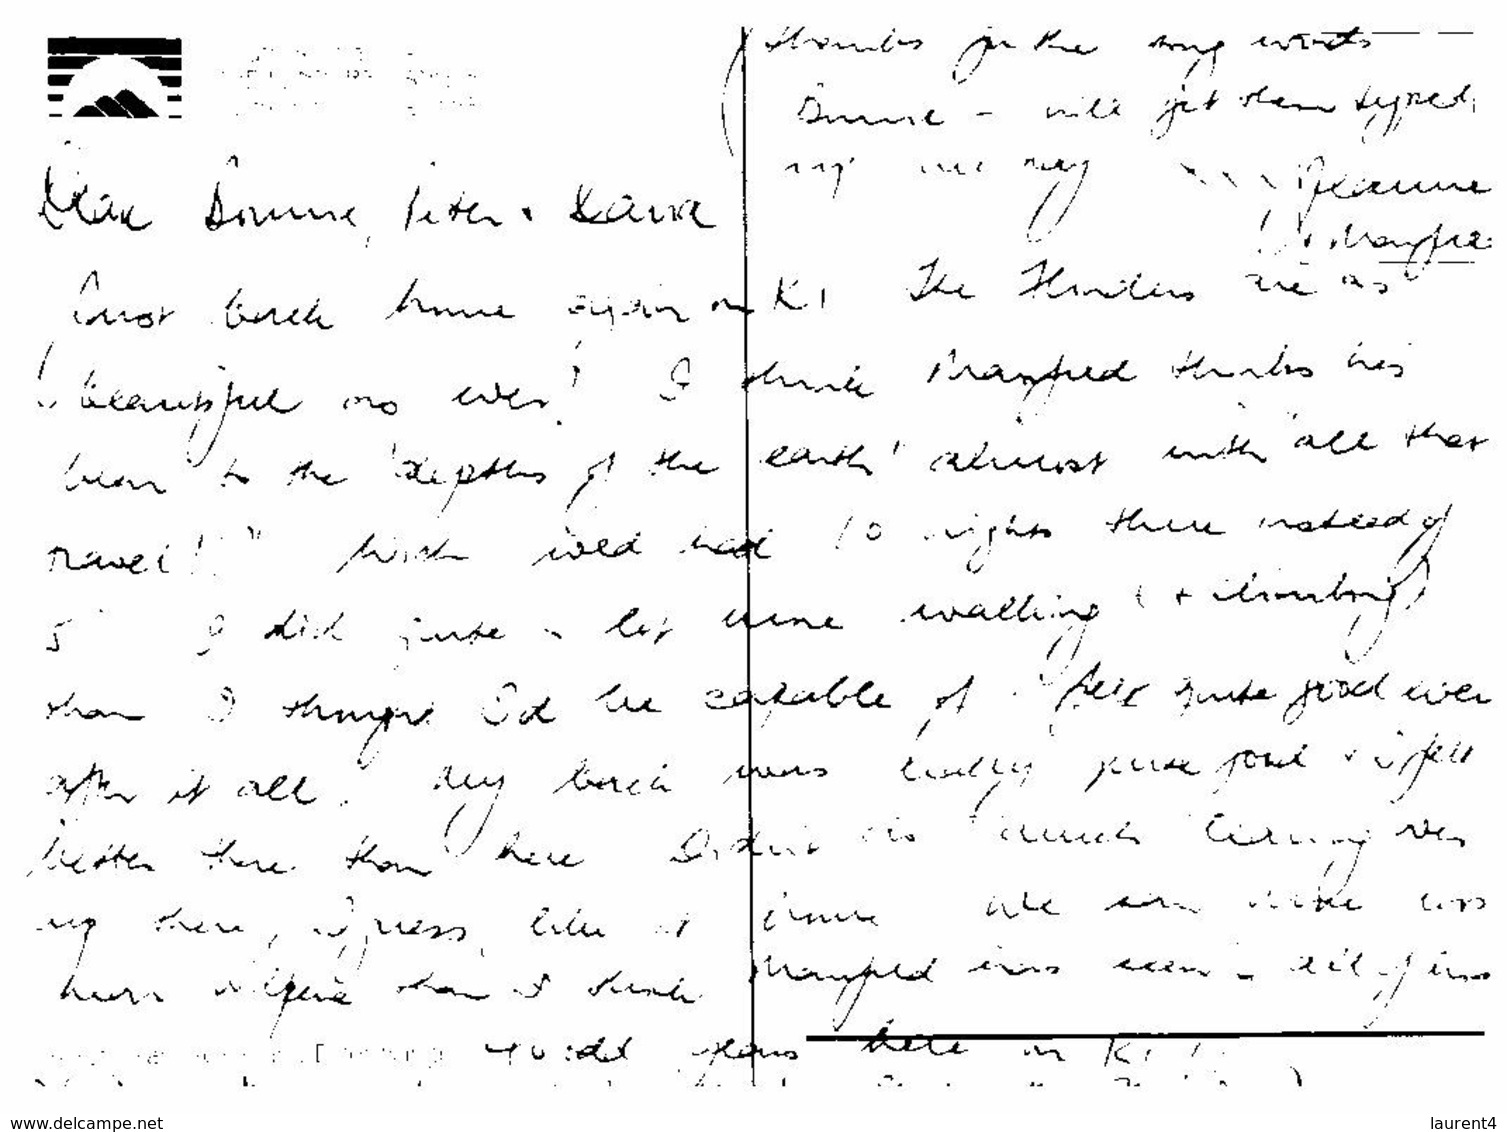 Dear Bonnie, Peter &
back home again on K1 The Flinders are as
beautiful as ever! I think Manfred thinks he's
been to the 'depths of the earth' almost with all that
travel! Wish we'd had 10 nights there instead of
5 I did quite a lot more walking (+ climbing)
than I thought I'd be capable of. Felt quite good even
after it all. My back was really quite good & I felt
better there than here Didn't do much
up there, I guess, like at home We
than I think Manfred has seen in all of his
40 odd years here on K1!
thanks for the song words
Bonnie - will get them typed
up
Jeanne
+ Manfred
www.delcampe.net
laurent4